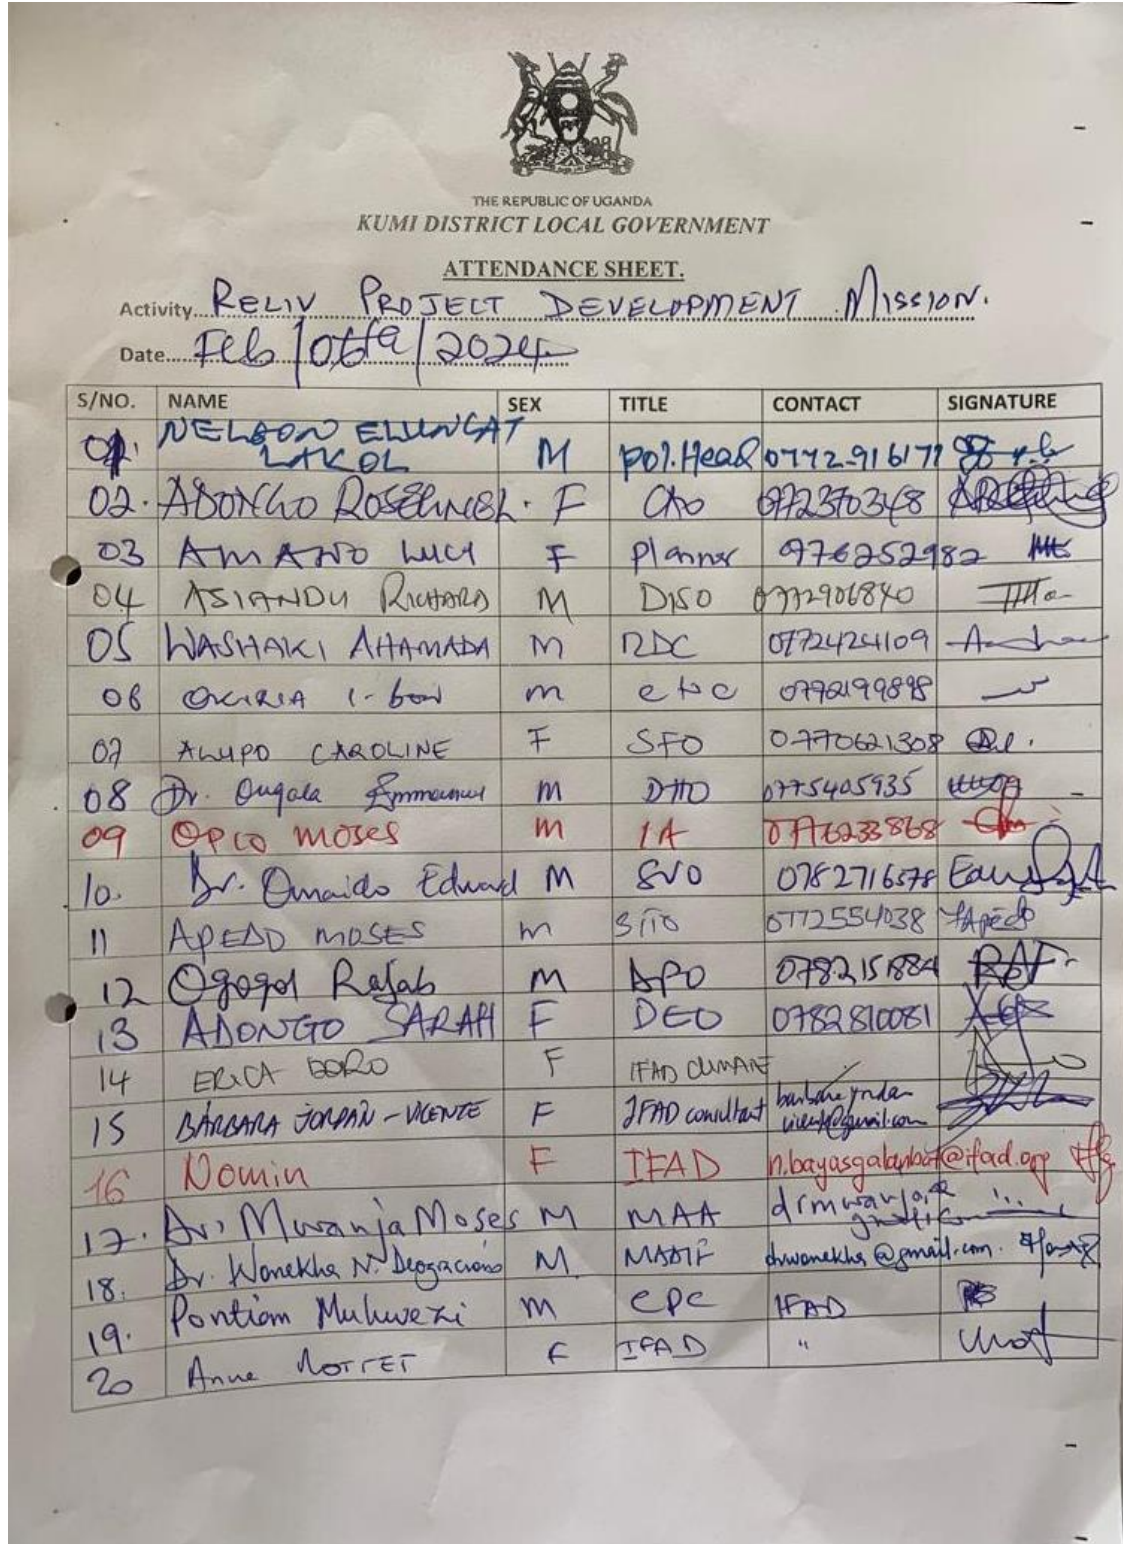 THE REPUBLIC OF UGANDA
KUMI DISTRICT LOCAL GOVERNMENT
ATTENDANCE SHEET.
Activity RELIV PROJECT DEVELOPMENT MISSION.
Date Feb/06th/2024
S/NO. NAME SEX TITLE CONTACT SIGNATURE
01. NELSON ELUNGAT LAKOL M pol. Head 0772-916171
02. ADONGO F CAO 0772370348
03 AMANO LUCY F Planner 0776252982
04 ASIANDU RICHARD M DISO 0772906840
05 WASHAKI AHAMADA M RDC 0772424109
06 OKIRIA M 0772199898
07 ALUPO CAROLINE F SFO 0770621308
08 Dr. Emmanuel M 0775405935
09 OPIO MOSES M IA 0776233868
10. Dr. Omaido Edward M SVO 0782716578
11 APEDO MOSES M 0772554038 Apedo
12 Ogogol Rajab M APO 0782151884
13 ADONGO SARAH F DEO 0782810081
14 ERICA F IFAD CLIMATE
15 BÁRBARA JORDÁN-VICENTE F IFAD consultant
16 Nomin F IFAD n.bayasgalanbat@ifad.org
17. Dr. Mwanja Moses M MAA
18. Dr. Wanekha N. M. MAAIF drwanekha@gmail.com.
19. Pontian Muhwezi M CPC IFAD
20 Anne F IFAD "